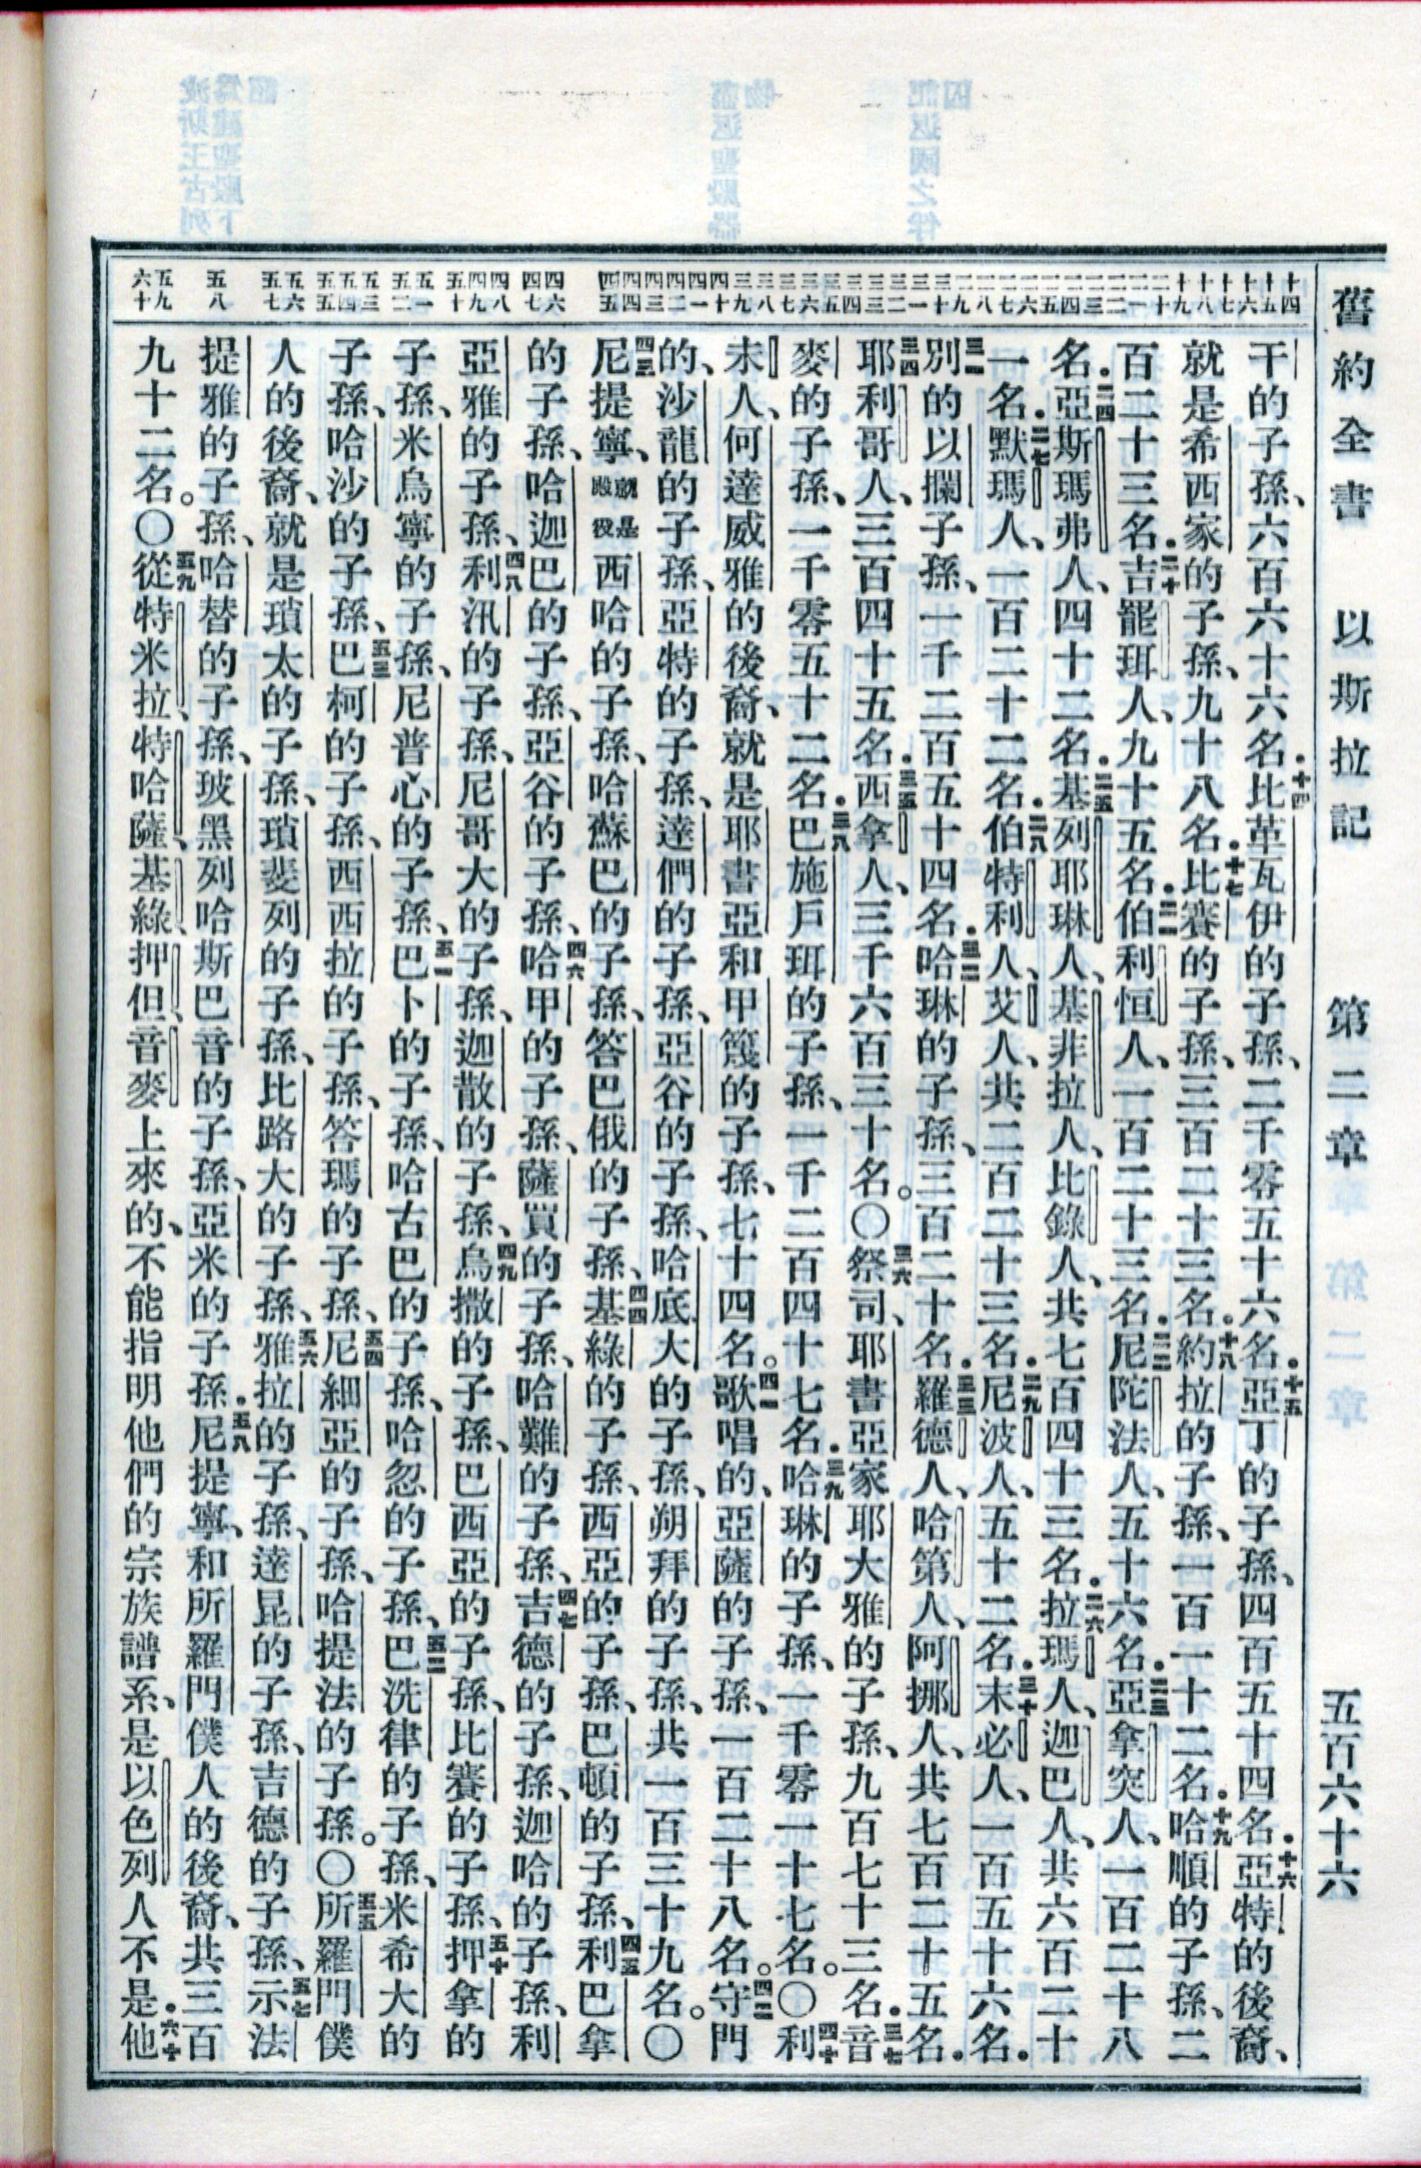 舊約全書 以斯拉記 第二章 五百六十六
十四 十五 十六 十七 十八 十九 二十 二一 二二 二三 二四 二五 二六 二七 二八 二九 三十 三一 三二 三三 三四 三五 三六 三七 三八 三九 四十 四一 四二 四三 四四 四五 四六 四七 四八 四九 五十 五一 五二 五三 五四 五五 五六 五七 五八 五九 六十
干的子孫、六百六十六名.十四比革瓦伊的子孫、二千零五十六名.十五亞丁的子孫、四百五十四名.十六亞特的後裔、
就是希西家的子孫、九十八名.十七比賽的子孫、三百二十三名.十八約拉的子孫、一百一十二名.十九哈順的子孫、二
百二十三名.二十吉罷珥人、九十五名.二一伯利恒人、一百二十三名.二二尼陀法人、五十六名.二三亞拿突人、一百二十八
名.二四亞斯瑪弗人、四十二名.二五基列耶琳人、基非拉人、比錄人、共七百四十三名.二六拉瑪人、迦巴人、共六百二十
一名.二七默瑪人、一百二十二名.二八伯特利人、艾人、共二百二十三名.二九尼波人、五十二名.三十末必人、一百五十六名.
三一別的以攔子孫、一千二百五十四名.三二哈琳的子孫、三百二十名.三三羅德人、哈第人、阿挪人、共七百二十五名.
三四耶利哥人、三百四十五名.三五西拿人、三千六百三十名。〇三六祭司、耶書亞家耶大雅的子孫、九百七十三名.三七音
麥的子孫、一千零五十二名.三八巴施戶珥的子孫、一千二百四十七名.三九哈琳的子孫、一千零一十七名。〇四十利
未人、何達威雅的後裔、就是耶書亞和甲篾的子孫、七十四名。四一歌唱的、亞薩的子孫、一百二十八名。四二守門
的、沙龍的子孫、亞特的子孫、達們的子孫、亞谷的子孫、哈底大的子孫、朔拜的子孫、共一百三十九名。〇
四三尼提寧、就是殿役西哈的子孫、哈蘇巴的子孫、答巴俄的子孫、四四基綠的子孫、西亞的子孫、巴頓的子孫、四五利巴拿
的子孫、哈迦巴的子孫、亞谷的子孫、四六哈甲的子孫、薩買的子孫、哈難的子孫、四七吉德的子孫、迦哈的子孫、利
亞雅的子孫、四八利汛的子孫、尼哥大的子孫、迦散的子孫、四九烏撒的子孫、巴西亞的子孫、比賽的子孫、五十押拿的
子孫、米烏寧的子孫、尼普心的子孫、五一巴卜的子孫、哈古巴的子孫、哈忽的子孫、五二巴洗律的子孫、米希大的
子孫、哈沙的子孫、五三巴柯的子孫、西西拉的子孫、答瑪的子孫、五四尼細亞的子孫、哈提法的子孫。〇五五所羅門僕
人的後裔、就是瑣太的子孫、瑣斐列的子孫、比路大的子孫、五六雅拉的子孫、達昆的子孫、吉德的子孫、五七示法
提雅的子孫、哈替的子孫、玻黑列哈斯巴音的子孫、亞米的子孫.五八尼提寧、和所羅門僕人的後裔、共三百
九十二名。〇五九從特米拉、特哈薩、基綠、押但、音麥上來的、不能指明他們的宗族譜系、是以色列人不是.六十他